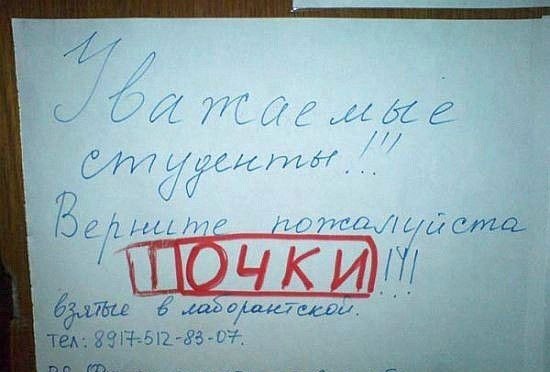 Уважаемые
студенты!!!
Верните пожалуйста
ТОЧКИ!!!
взятые в лаборантской.
тел: 8917-512-83-07.